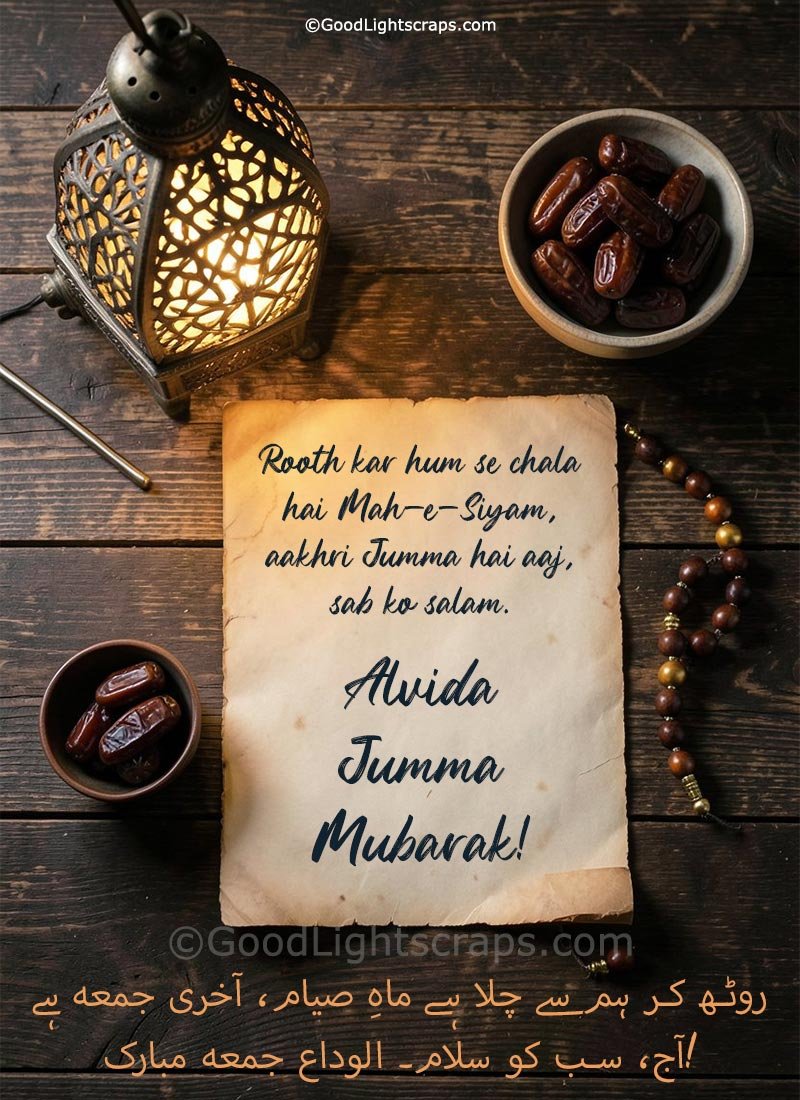 ©GoodLightscraps.com
Rooth kar hum se chala
hai Mah-e-Siyam,
aakhri Jumma hai aaj,
sab ko salam.
Alvida
Jumma
Mubarak!
©GoodLightscraps.com
روٹھ کر ہم سے چلا ہے ماہِ صیام، آخری جمعہ ہے
آج، سب کو سلام۔ الوداع جمعہ مبارک!